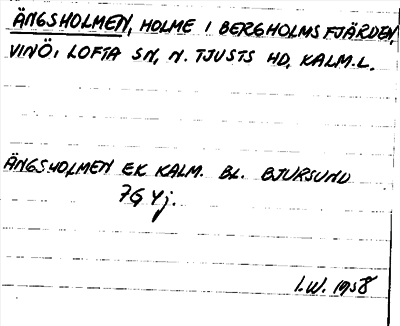 ÄNGSHOLMEN, HOLME I BERGHOLMSFJÄRDEN,
VINÖ, LOFTA SN, N. TJUSTS HD, KALM.L.
ÄNGSHOLMEN EK KALM. BL. BJURSUND
7G 4j.
I.W. 1958